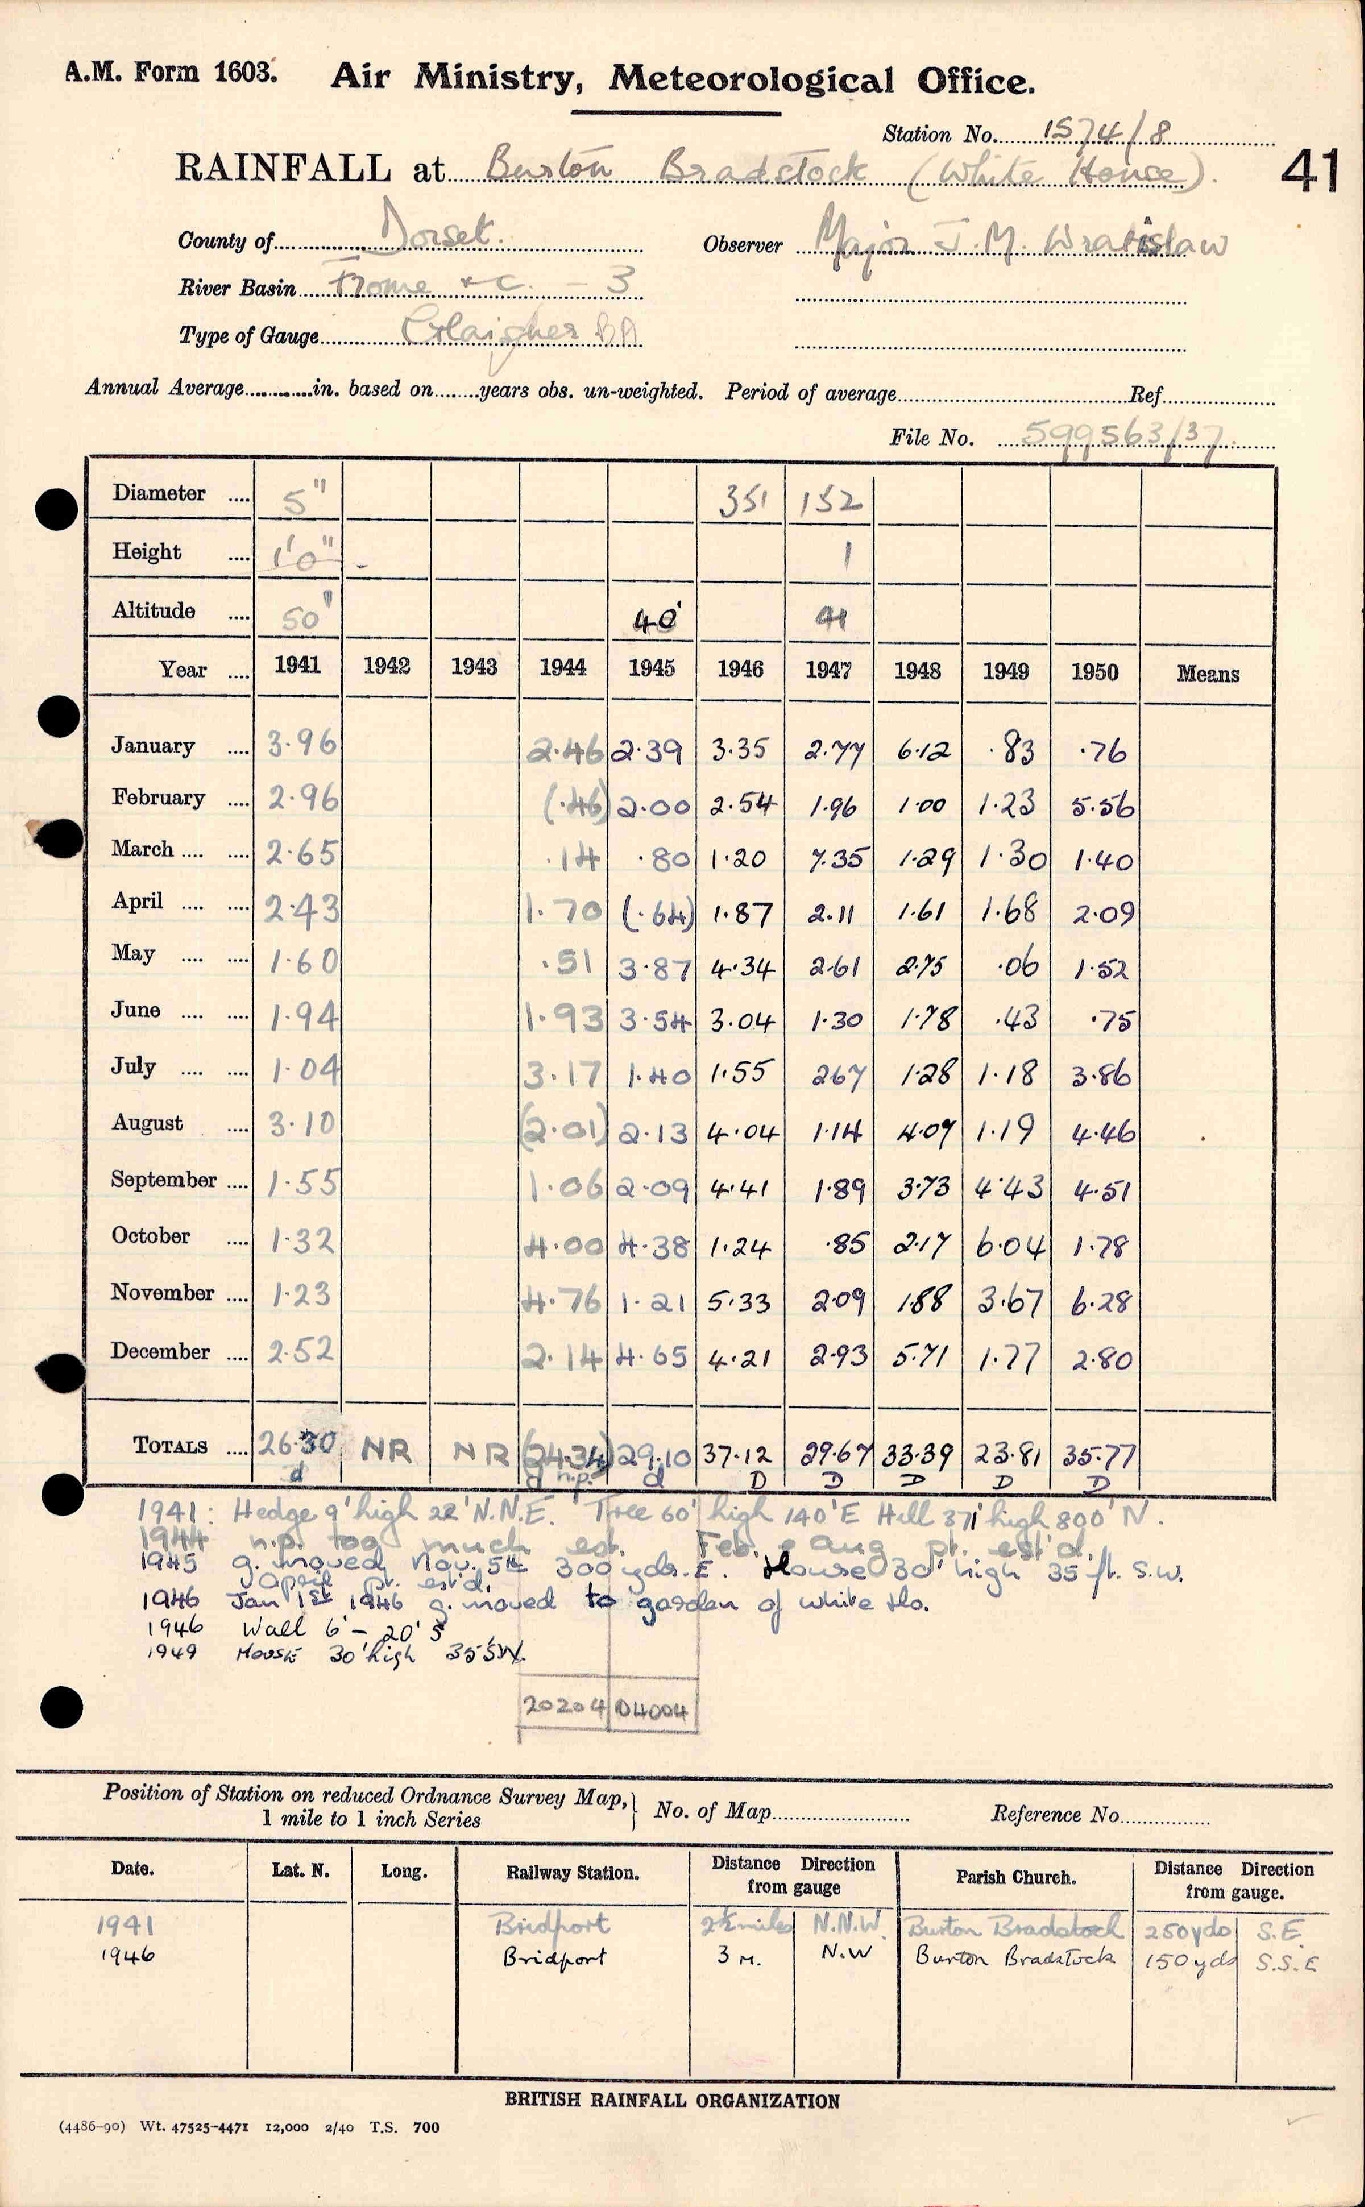 A.M. Form 1603. Air Ministry, Meteorological Office.
Station No. 1574/8
RAINFALL at Burton Bradstock (White House). 41
County of Dorset. Observer Major J. M. Wratislaw
River Basin Frome &c. - 3
Type of Gauge Glaisher
Annual Average in. based on years obs. un-weighted. Period of average Ref.
File No. 599563/37
Diameter 5" 351 152
Height 1'0" 1
Altitude 50' 40' 41
Year 1941 1942 1943 1944 1945 1946 1947 1948 1949 1950 Means
January 3·96 2·46 2·39 3·35 2·77 6·12 ·83 ·76
February 2·96 (·46) 2·00 2·54 1·96 1·00 1·23 5·56
March 2·65 ·14 ·80 1·20 7·35 1·29 1·30 1·40
April 2·43 1·70 (·64) 1·87 2·11 1·61 1·68 2·09
May 1·60 ·51 3·87 4·34 2·61 2·75 ·06 1·52
June 1·94 1·93 3·54 3·04 1·30 1·78 ·43 ·75
July 1·04 3·17 1·40 1·55 2·67 1·28 1·18 3·86
August 3·10 (2·01) 2·13 4·04 1·14 4·07 1·19 4·46
September 1·55 1·06 2·09 4·41 1·89 3·73 4·43 4·51
October 1·32 4·00 4·38 1·24 ·85 2·17 6·04 1·78
November 1·23 4·76 1·21 5·33 2·09 1·88 3·67 6·28
December 2·52 2·14 4·65 4·21 2·93 5·71 1·77 2·80
TOTALS 26·30 NR NR (24·34) 29·10 37·12 29·67 33·39 23·81 35·77
d d n.p. d D D D D D
1941: Hedge 9' high 22' N.N.E. Tree 60' high 140' E Hill 371' high 800' N.
1944 n.p. too much est. Feb. & Aug pt. est'd.
1945 g. moved Nov. 5th 300 yds. E. House 30' high 35 ft. S.W.
April pt. est'd.
1946 Jan 1st 1946 g. moved to garden of White Ho.
1946 Wall 6' - 20' S
1949 House 30' high 35' SW.
20204 04004
Position of Station on reduced Ordnance Survey Map, 1 mile to 1 inch Series No. of Map Reference No.
Date. Lat. N. Long. Railway Station. Distance Direction from gauge Parish Church. Distance Direction from gauge.
1941 Bridport 2½ miles N.N.W. Burton Bradstock 250 yds S.E.
1946 Bridport 3 M. N.W Burton Bradstock 150 yds S.S.E
BRITISH RAINFALL ORGANIZATION
(4486-90) Wt. 47525-4471 12,000 2/40 T.S. 700